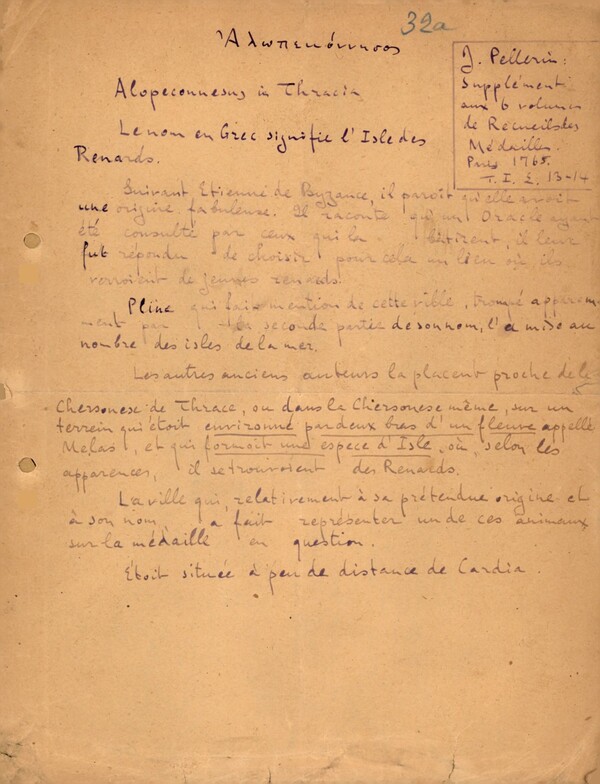 32a
Ἀλωπεκόννησος
J. Pellerin:
Supplément
aux 6 volumes
de Recueils des
Médailles.
Paris 1765.
T. I. 13-14
Alopeconnesus in Thracia
Le nom en Grec signifie l'Isle des
Renards.
Suivant Etienne de Byzance, il paroît qu'elle avoit
une origine fabuleuse. Il raconte qu'un Oracle ayant
été consulté par ceux qui la bâtirent, il leur
fut répondu de choisir pour cela un lieu où ils
verroient de jeunes renards.
Pline qui fait mention de cette ville, trompé apparem-
ment par la seconde partie de son nom, l'a mise au
nombre des isles de la mer.
Les autres anciens auteurs la placent proche de la
Chersonese de Thrace, ou dans la Chersonese même, sur un
terrein qui étoit environné par deux bras d'un fleuve appellé
Melas, et qui formoit une espece d'Isle, où, selon les
apparences, il se trouvoient des Renards.
La ville qui, relativement à sa prétendue origine et
à son nom, a fait représenter un de ces animaux
sur la médaille en question.
Étoit située à peu de distance de Cardia.